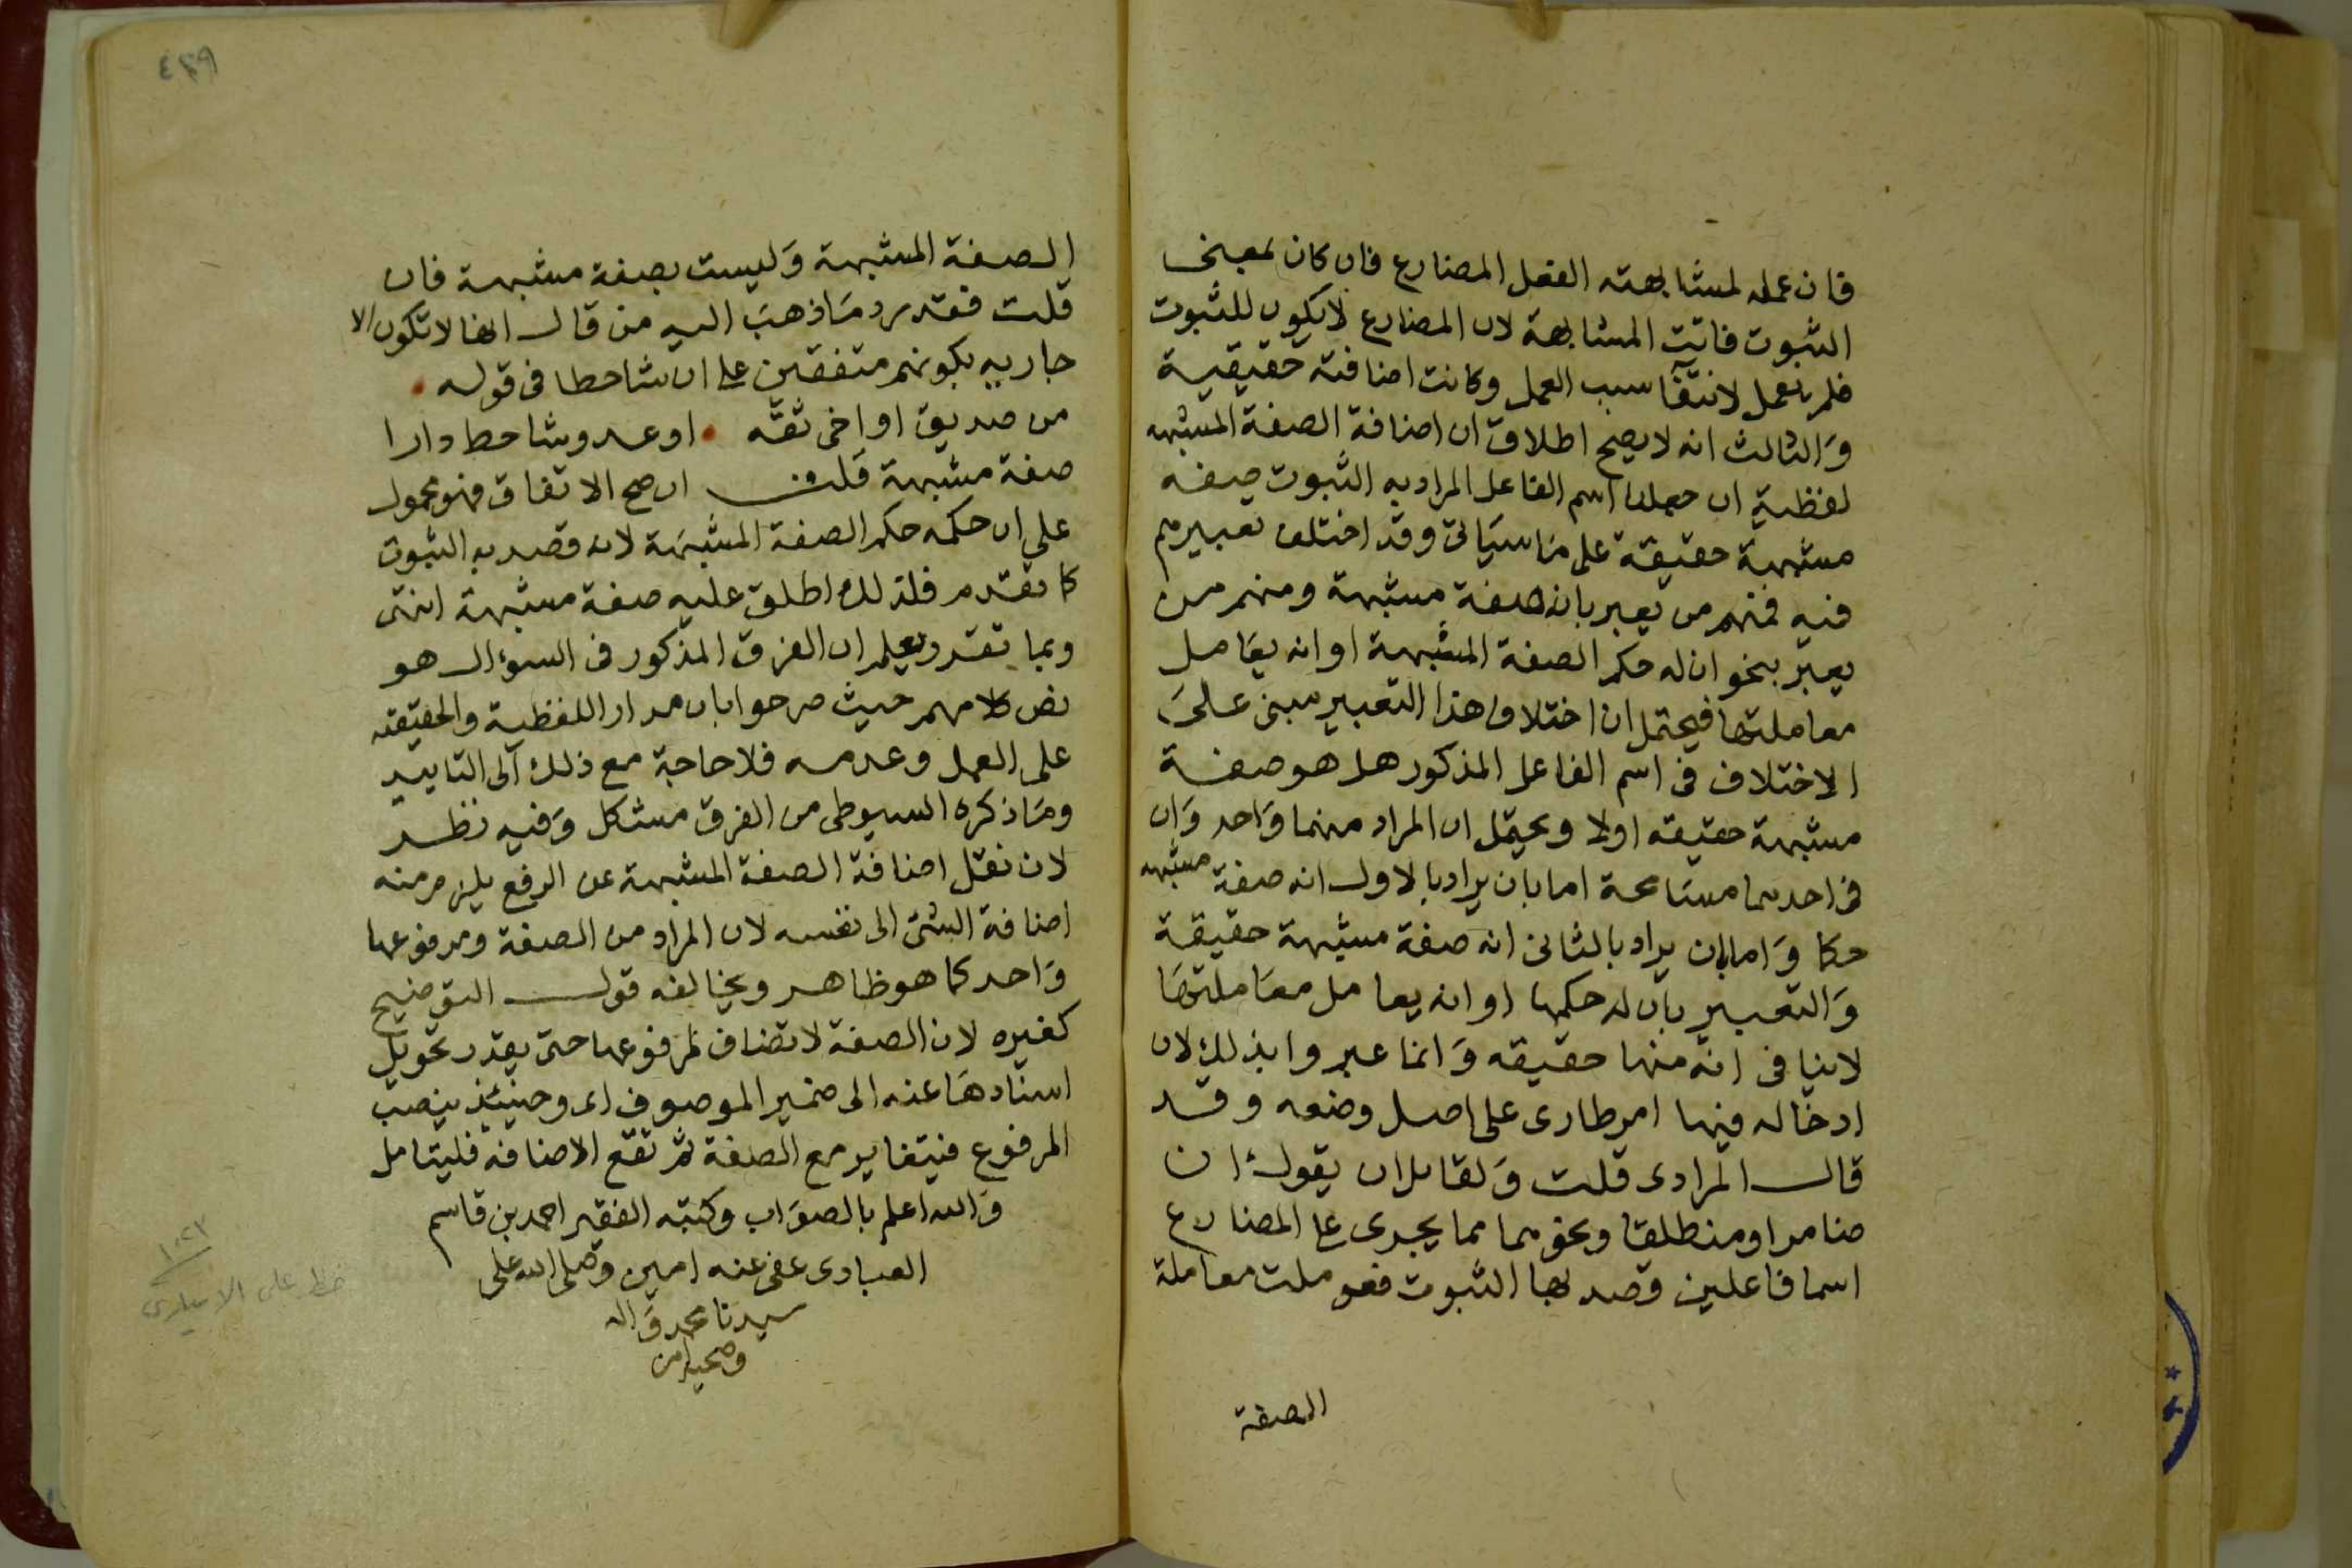 فان عمله لمشابهته الفعل المضارع فان كان بمعنى
الثبوت فاتت المشابهة لان المضارع لا يكون للثبوت
فلم يعمل لانتفا سبب العمل وكانت اضافته حقيقية
وَالثالث انه لا يصح اطلاق ان اضافة الصفة المشبهه
لفظية ان جعلنا اسم الفاعل المراد به الثبوت صفه
مشبهة حقيقة على مَا سيَاتى وقد اختلف تعبيرهم
فيه فمنهم من يعبر بانه صفة مشبهة ومنهم من
يعبر بنحو ان له حكم الصفة المشبهة او انه يعَامل
معاملتها فيحتمل ان اختلاف هذا التعبير مبنى علىَ
الاختلاف فى اسم الفاعل المذكور هل هو صفة
مشبهة حقيقه اولا ويحتمل ان المراد منهما وَاحد وَان
فى احدهما مسَامحة اما بان يراد بالاول انه صفة مشبهه
حكا وَاما بان يراد بالثانى انه صفة مشبهة حقيقة
وَالتعبير بان له حكمها او انه يعامل معَاملتهَا
لا ينافى انه منها حقيقه وَانما عبروا بذلك لان
ادخاله فيها امر طارى على اصل وضعه وقد
قال المرادى قلت وَلقايل ان يقول ان
ضامرا ومنطلقا ونحوهما مما يجرى على المضارع
اسما فاعلين قصد بها الثبوت فعوملت معاملة
الصفة
٤٣٩
الصفة المشبهة وَليست بصفة مشبهة فان
قلت فقد رد مَا ذهبَ اليه من قال انها لا تكون الا
جاريه بكونهم متفقين على ان شاحطا فى قوله
من صديق او اخى ثقه او عدو شاحط دارا
صفة مشبهة قلت ان صح الاتفاق فهو محمول
على ان حكمه حكم الصفة المشبهَة لانه قصد به الثبوت
كما تقدم فلذلك اطلق عليه صفة مشبهة انتهى
وبما تقرر يعلم ان الفرق المذكور فى السوءال هو
نص كلامهم حيث صرحوا بان مدار اللفظية والحقيقه
على العمل وعدمه فلا حاجة مع ذلك الى التاييد
ومَا ذكره السيوطى من الفرق مشكل وَفيه نظر
لان نقل اضافة الصفة المشبهة عن الرفع يلزم منه
اضافة الشئ الى نفسه لان المراد من الصفة ومرفوعها
وَاحد كما هو ظاهر ويخالفه قول التوضيح
كغيره لان الصفة لا تضاف لمرفوعها حتى يقدر تحويل
اسنادهَا عنه الى ضمير الموصوف اى وحينئذ ينصب
المرفوع فيتغاير مع الصفة ثم تقع الاضافه فليتامل
وَالله اعلم بالصوَاب وكتبه الفقير احمد بن قاسم
العبادى عفى عنه امين وَصلى الله على
سيدنا محمد وَاله
وصحبه امين
١٠٢١
خط على